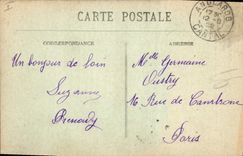 CARTE POSTALE
CORRESPONDANCE
ADRESSE
Un bonjour de loin
Suzanne
Mlle Germaine
Oustry
16 Rue de Cambronne
Paris
CANTAL